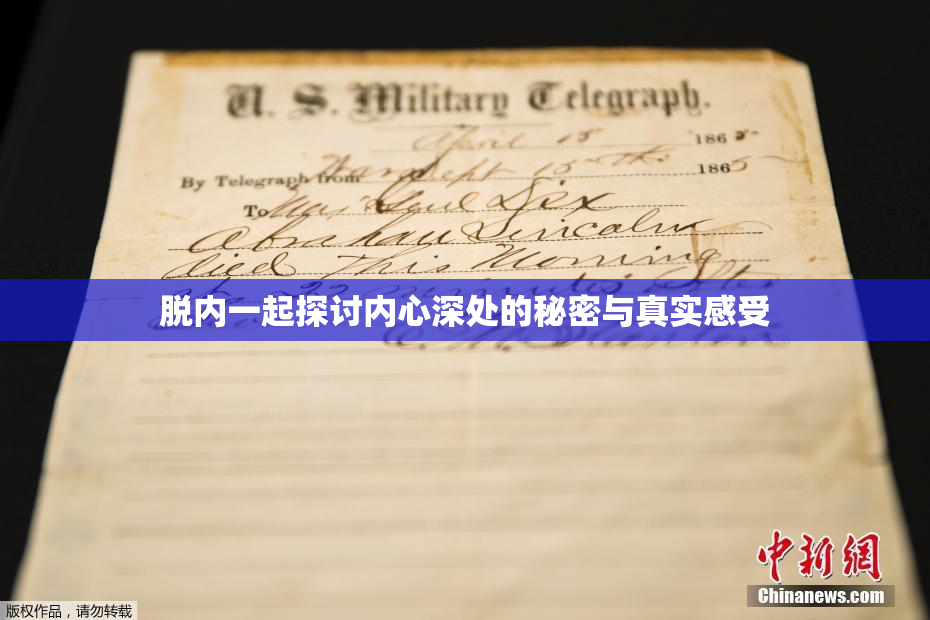 U. S. Military Telegraph.
April 15 1865
By Telegraph from War Dept 15th 1865
To Maj Genl Dix
Abraham Lincoln
died This Morning
at 22 minutes after
脱内一起探讨内心深处的秘密与真实感受
E. M. Stanton
中新網
Chinanews.com
版权作品，请勿转载